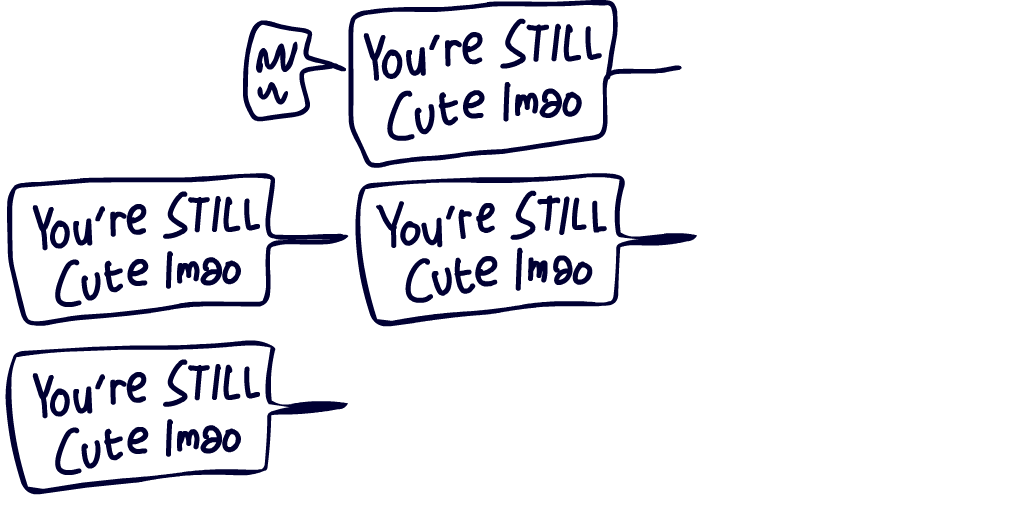 You're STILL
Cute lmao
You're STILL
Cute lmao
You're STILL
Cute lmao
You're STILL
Cute lmao